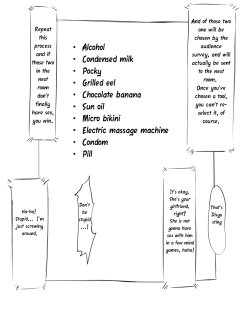 Repeat
this
process
and if
those two
in the
next
room
don't
finally
have sex,
you win.
And of those two
one will be
chosen by the
audience
survey, and will
actually be sent
to the next
room.
Once you've
chosen a tool,
you can't re-
select it, of
course.
• Alcohol
• Condensed milk
• Pocky
• Grilled eel
• Chocolate banana
• Sun oil
• Micro bikini
• Electric massage machine
• Condom
• Pill
It's okay.
She's your
girlfriend,
right?
She is not
gonna have
sex with him
in a few mind
games, haha!
That's
sting
Don't
be
stupid
...!
Ha-ha!
Stupid... I'm
just screwing
around.